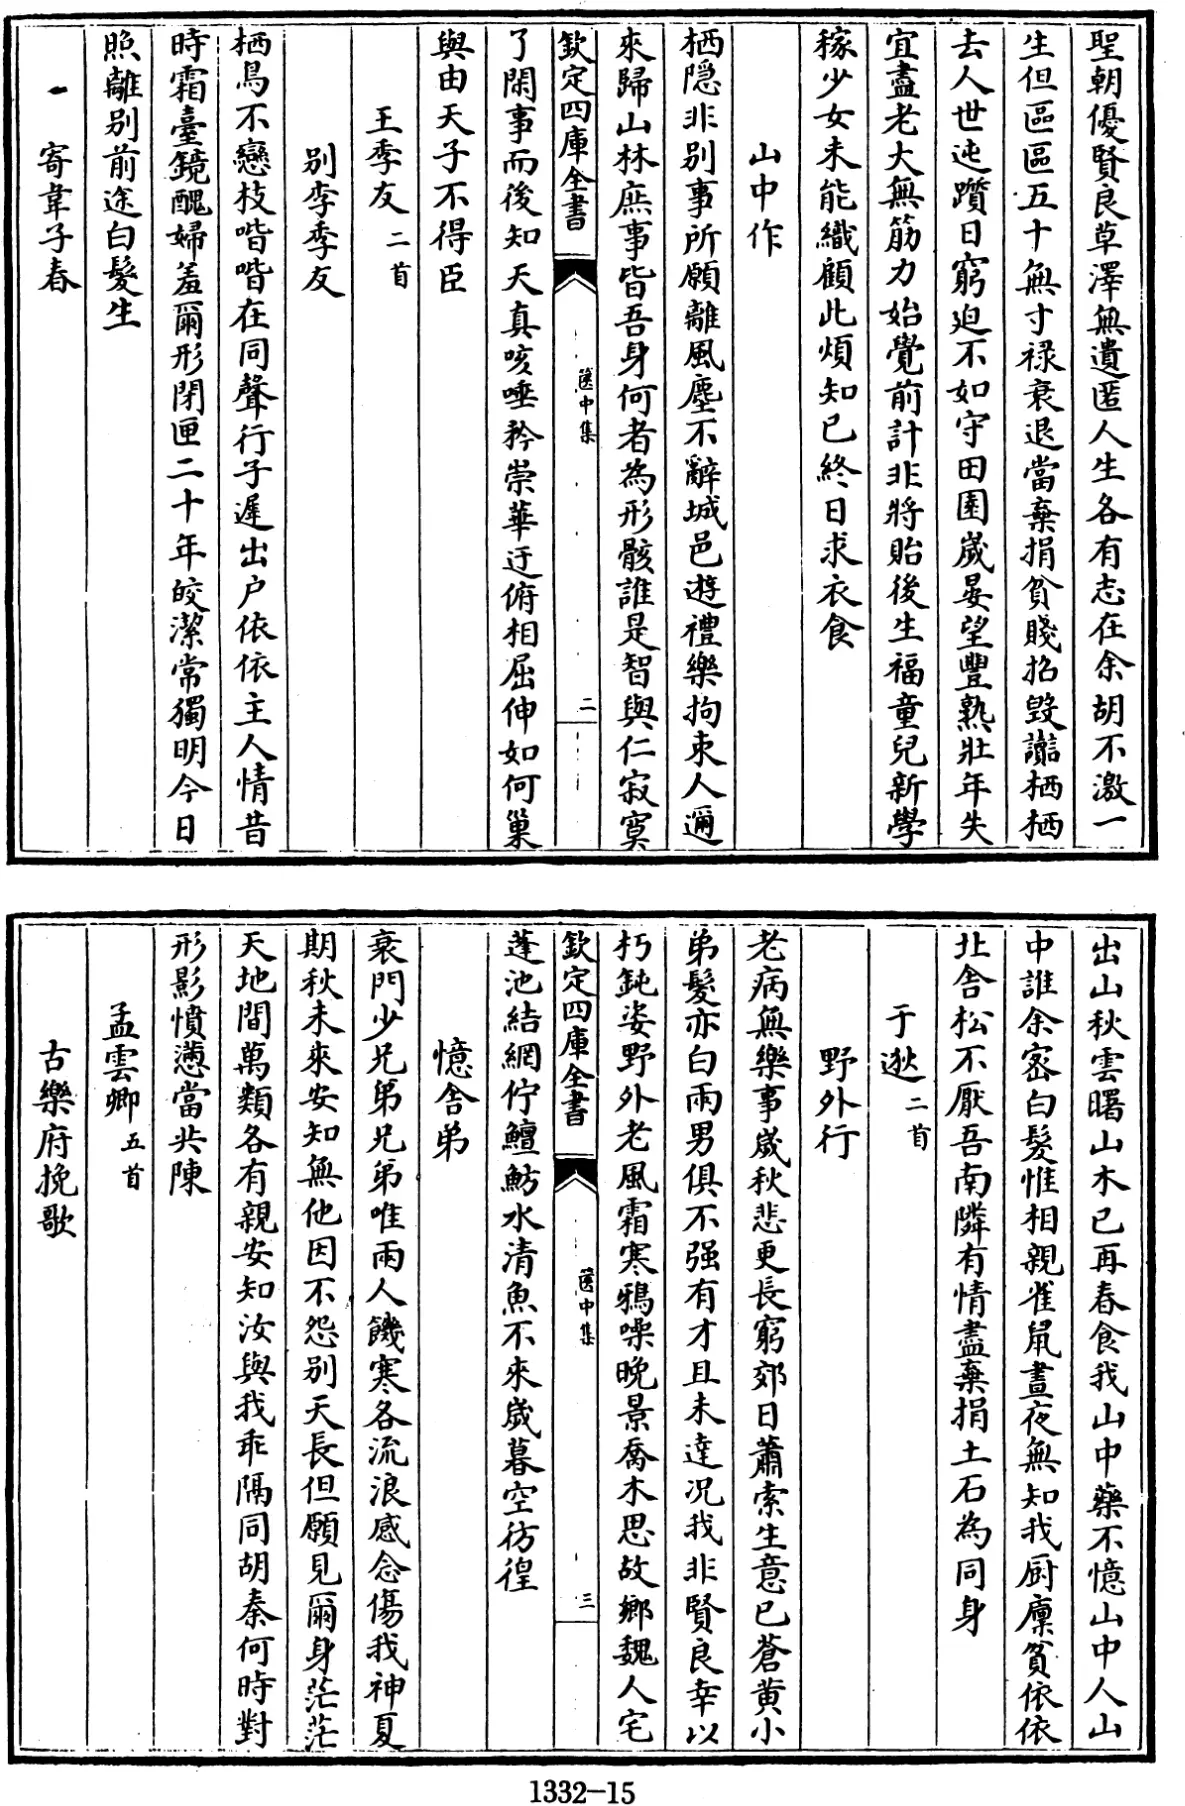 聖朝優賢良草澤無遺匿人生各有志在余胡不激一
生但區區五十無寸祿衰退當棄捐貧賤招毀讟栖栖
去人世迍躓日窮迫不如守田園歲晏望豐熟壯年失
宜盡老大無筋力始覺前計非將貽後生福童兒新學
稼少女未能織顧此煩知已終日求衣食
山中作
栖隱非別事所願離風塵不辭城邑遊禮樂拘束人邇
來歸山林庶事皆吾身何者為形骸誰是智與仁寂寞
欽定四庫全書
篋中集
二
了閑事而後知天真咳唾矜崇華迂俯相屈伸如何巢
與由天子不得臣
王季友二首
別李季友
栖鳥不戀枝喈喈在同聲行子遲出户依依主人情昔
時霜臺鏡醜婦羞爾形閉匣二十年皎潔常獨明今日
照離別前途白髮生
寄韋子春
出山秋雲曙山木已再春食我山中藥不憶山中人山
中誰余密白髮惟相親雀鼠晝夜無知我厨廩貧依依
北舎松不厭吾南隣有情盡棄捐土石為同身
于逖二首
野外行
老病無樂事歲秋悲更長窮郊日蕭索生意已蒼黄小
弟髮亦白兩男俱不强有才且未達况我非賢良幸以
朽鈍姿野外老風霜寒鴉噪晚景喬木思故鄉魏人宅
欽定四庫全書
篋中集
三
蓬池結網佇鱣魴水清魚不來歲暮空彷徨
憶舍弟
衰門少兄弟兄弟唯兩人饑寒各流浪感念傷我神夏
期秋未來安知無他因不怨別天長但願見爾身茫茫
天地間萬類各有親安知汝與我乖隔同胡秦何時對
形影憤懣當共陳
孟雲卿五首
古樂府挽歌
1332-15